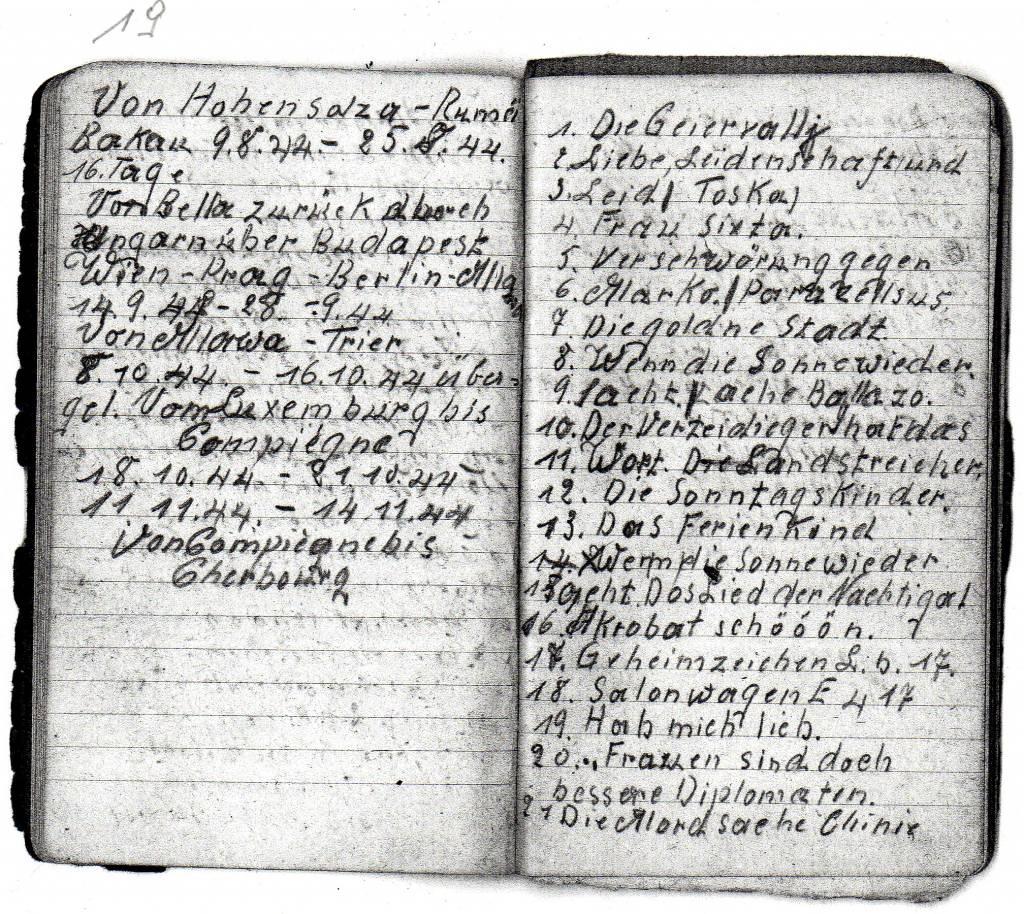 19
Von Hohensalza - Rumä
Bakau 9.8.44 - 25.8.44.
16. Tage
Von Bella zurück durch
Ungarn über Budapest
Wien - Prag - Berlin - Mlawa
14.9.44 - 28. - 9.44
Von Mlawa - Trier
8.10.44. - 16.10.44 über-
gel. Vom Luxemburg bis
Compiègne
18.10.44. - 21.10.44 -
11 11.44. - 14 11.44
Von Compiegne bis
Cherbourg
1. Die Geierwally
2. Liebe, Leidenschaft und
3. Leid / Toska /
4. Frau Sixta.
5. Verschwörung gegen
6. Marko. / Parazellsus
7. Die goldne Stadt.
8. Wenn die Sonne wieder.
9. lacht / Lache Bajazo.
10. Der Verteidieger hat das
11. Wort. Die Landstreicher.
12. Die Sonntagskinder.
13. Das Ferien Kind
14. Wenn die Sonne wieder
15 geht. Das Lied der Nachtigal
16. Akrobat schööön.
17. Geheimzeichen L. b. 17.
18. Salonwagen E 417
19. Hab mich lieb.
20.. Frauen sind doch
bessere Diplomaten.
21 Die Mordsache Clinix